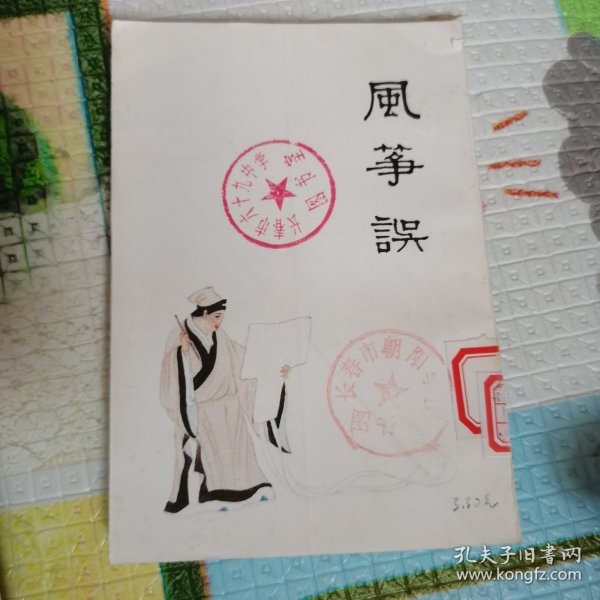 風筝誤
长春市六十九中学
图书室
长春市朝阳
图
3.30元
孔夫子旧书网
www.kongfz.com